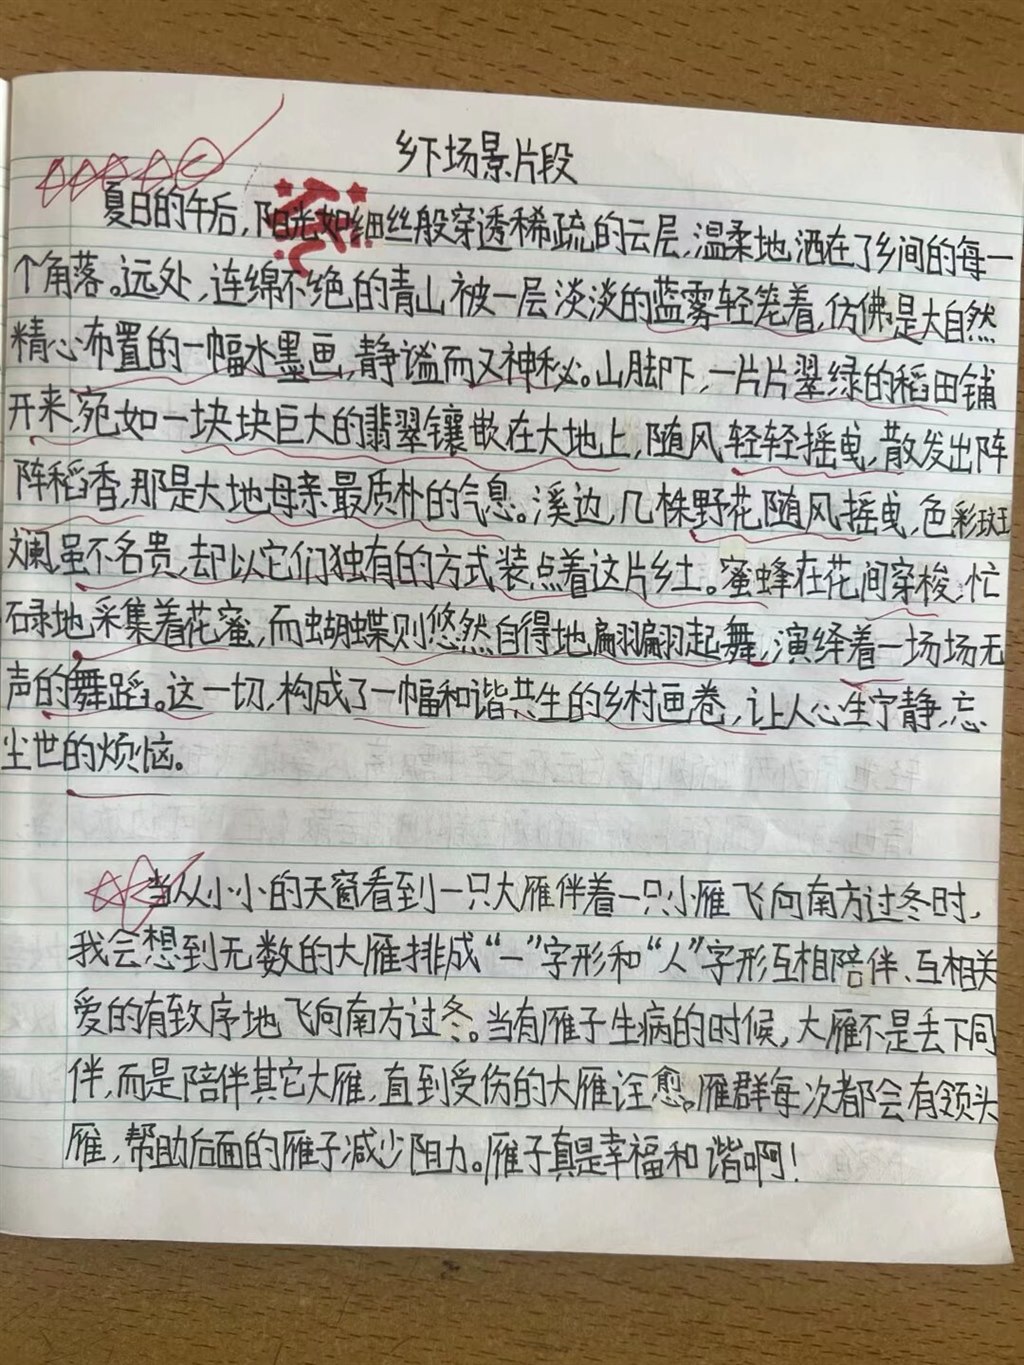 乡下场景片段
夏日的午后，阳光如细丝般穿透稀疏的云层，温柔地洒在了乡间的每一
个角落。远处，连绵不绝的青山被一层淡淡的蓝雾轻笼着，仿佛是大自然
精心布置的一幅水墨画，静谧而又神秘。山脚下，一片片翠绿的稻田铺
开来，宛如一块块巨大的翡翠镶嵌在大地上，随风轻轻摇曳，散发出阵
阵稻香，那是大地母亲最质朴的气息。溪边，几株野花随风摇曳，色彩斑
斓，虽不名贵，却以它们独有的方式装点着这片乡土。蜜蜂在花间穿梭，忙
碌地采集着花蜜，而蝴蝶则悠然自得地翩翩起舞，演绎着一场场无
声的舞蹈。这一切，构成了一幅和谐共生的乡村画卷，让人心生宁静，忘
尘世的烦恼。
当从小小的天窗看到一只大雁伴着一只小雁飞向南方过冬时，
我会想到无数的大雁排成“一”字形和“人”字形互相陪伴、互相关
爱的有致序地飞向南方过冬。当有雁子生病的时候，大雁不是丢下同
伴，而是陪伴其它大雁，直到受伤的大雁诠愈。雁群每次都会有领头
雁，帮助后面的雁子减少阻力。雁子真是幸福和谐啊！